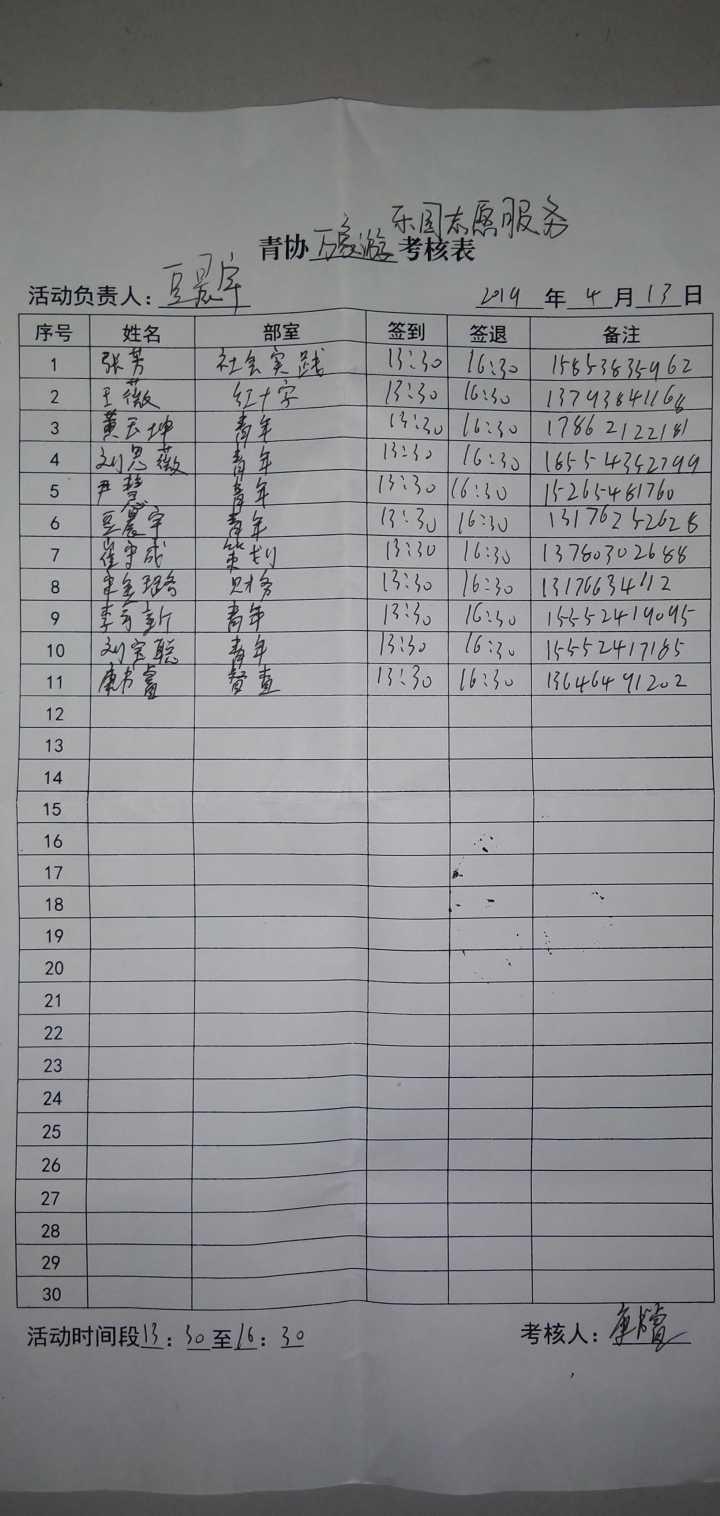 乐园志愿服务
青协万家游考核表
活动负责人：豆晨宇 2019年4月13日
序号 姓名 部室 签到 签退 备注
1 张芳 社会实践 13:30 16:30 15853835962
2 王薇 红十字 13:30 16:30 13793841168
3 黄云坤 青年 13:30 16:30 17862122181
4 刘思薇 青年 13:30 16:30 18554352799
5 尹慧 青年 13:30 16:30 15265481760
6 豆晨宇 青年 13:30 16:30 13176252628
7 崔守成 策划 13:30 16:30 13780302688
8 财务 13:30 16:30
9 青年 13:30 16:30 15552419095
10 刘宝聪 青年 13:30 16:30 15552417185
11 督查 13:30 16:30 13646491202
12
13
14
15
16
17
18
19
20
21
22
23
24
25
26
27
28
29
30
活动时间段13：30至16：30 考核人：